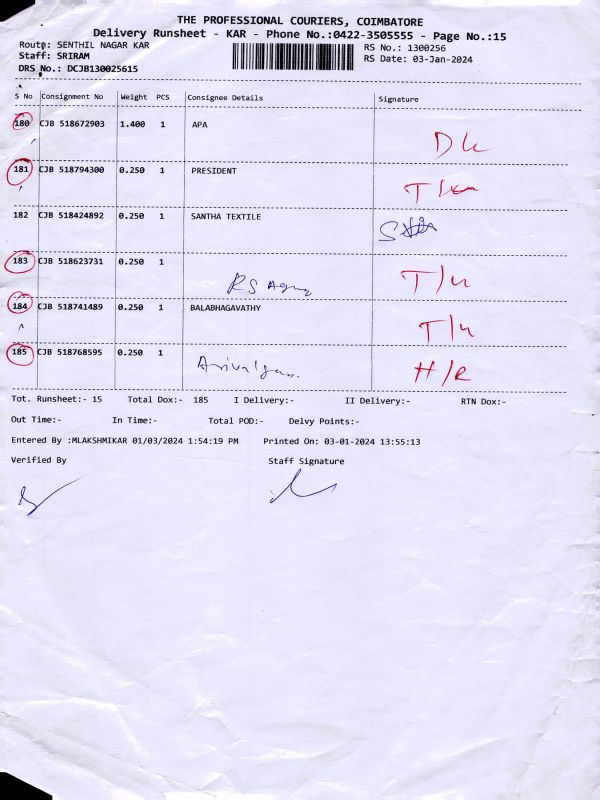 THE PROFESSIONAL COURIERS, COIMBATORE
Delivery Runsheet - KAR - Phone No.:0422-3505555 - Page No.:15
Route: SENTHIL NAGAR KAR
RS No.: 1300256
Staff: SRIRAM
RS Date: 03-Jan-2024
DRS No.: DCJB130025615
S No Consignment No Weight PCS Consignee Details Signature
180 CJB 518672903 1.400 1 APA
181 CJB 518794300 0.250 1 PRESIDENT
182 CJB 518424892 0.250 1 SANTHA TEXTILE
183 CJB 518623731 0.250 1
RS T/u
184 CJB 518741489 0.250 1 BALABHAGAVATHY
T/u
185 CJB 518768595 0.250 1
H/R
Tot. Runsheet:- 15 Total Dox:- 185 I Delivery:- II Delivery:- RTN Dox:-
Out Time:- In Time:- Total POD:- Delvy Points:-
Entered By :MLAKSHMIKAR 01/03/2024 1:54:19 PM Printed On: 03-01-2024 13:55:13
Verified By Staff Signature